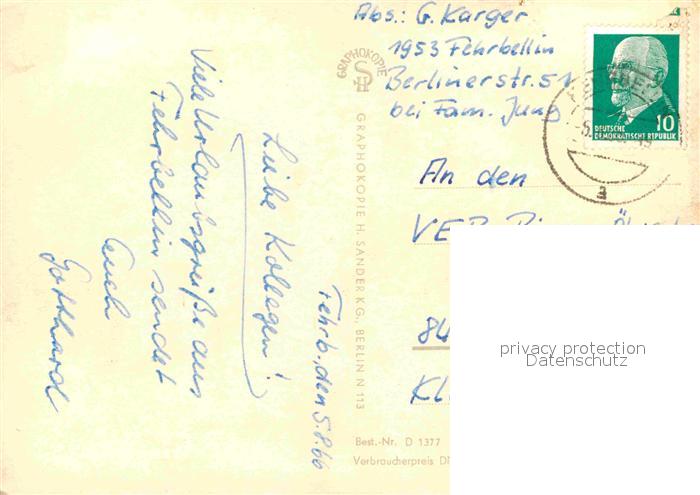 Abs.: G. Karger
1953 Fehrbellin
Berlinerstr. 51
bei Fam. Jung
10
DEUTSCHE
DEMOKRATISCHE REPUBLIK
a
An den
VEB
84
Kl
Fehrb., den 5.8.66
Liebe Kollegen!
Viele Urlaubsgrüße aus
Fehrbellin sendet
Euch
Gotthard
GRAPHOKOPIE
SH
GRAPHOKOPIE H. SANDER KG., BERLIN N 113
Best.-Nr. D 1377
Verbraucherpreis D
privacy protection
Datenschutz